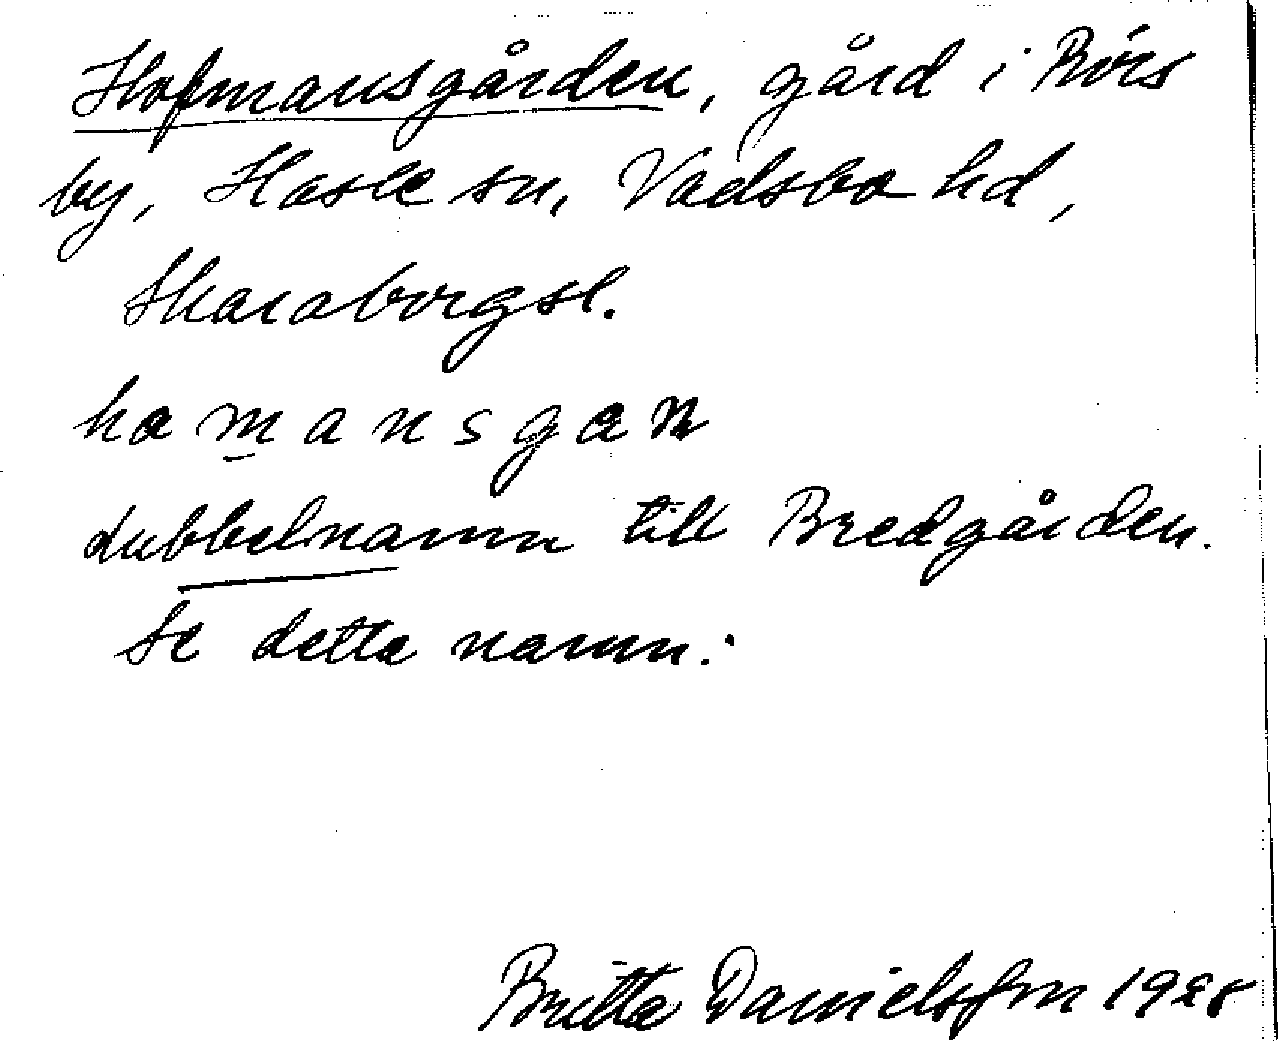 Hofmansgården, gård i Börs
by, Hasle sn, Vadsbo hd,
Skaraborgsl.
hamansgan
dubbelnamn till Bredgården.
Se detta namn.
Britta Danielsson 1928